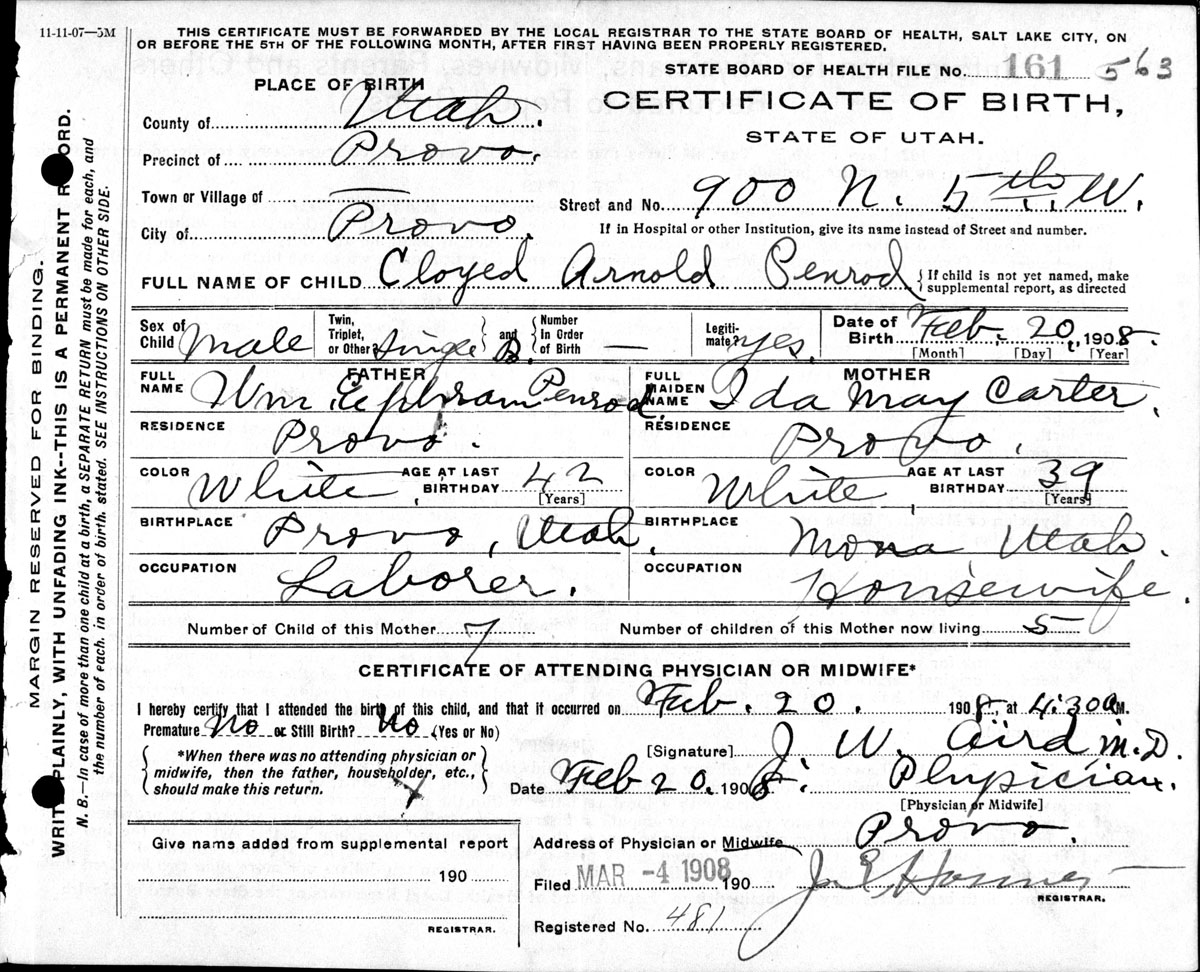 11-11-07—5M
THIS CERTIFICATE MUST BE FORWARDED BY THE LOCAL REGISTRAR TO THE STATE BOARD OF HEALTH, SALT LAKE CITY, ON
OR BEFORE THE 5TH OF THE FOLLOWING MONTH, AFTER FIRST HAVING BEEN PROPERLY REGISTERED.
STATE BOARD OF HEALTH FILE No. 161 563
PLACE OF BIRTH
CERTIFICATE OF BIRTH,
STATE OF UTAH.
County of Utah.
Precinct of Provo.
Town or Village of —
Street and No. 900 N. 5th W.
City of Provo.
If in Hospital or other Institution, give its name instead of Street and number.
FULL NAME OF CHILD Cloyed Arnold Penrod { If child is not yet named, make supplemental report, as directed
Sex of Child Male
Twin, Triplet, or Other? Single } and { Number In Order of Birth —
Legitimate? Yes.
Date of Birth Feb. 20, 1908.
[Month] [Day] [Year]
FATHER
FULL NAME Wm Ephram Penrod.
RESIDENCE Provo.
COLOR White AGE AT LAST BIRTHDAY 42 [Years]
BIRTHPLACE Provo, Utah.
OCCUPATION Laborer.
MOTHER
FULL MAIDEN NAME Ida May Carter.
RESIDENCE Provo.
COLOR White AGE AT LAST BIRTHDAY 39 [Years]
BIRTHPLACE Mona Utah.
OCCUPATION Housewife.
Number of Child of this Mother 7 Number of children of this Mother now living 5
CERTIFICATE OF ATTENDING PHYSICIAN OR MIDWIFE*
I hereby certify that I attended the birth of this child, and that it occurred on Feb. 20. 1908 at 4:30 a M.
Premature No or Still Birth? No (Yes or No)
{ *When there was no attending physician or midwife, then the father, householder, etc., should make this return. }
[Signature] J. W. Aird M.D.
Date Feb 20. 1908. Physician.
[Physician or Midwife]
Address of Physician or Midwife Provo.
Give name added from supplemental report
190
REGISTRAR.
Filed MAR -4 1908 190
REGISTRAR.
Registered No. 481
MARGIN RESERVED FOR BINDING.
WRITE PLAINLY, WITH UNFADING INK--THIS IS A PERMANENT RECORD.
N. B.—In case of more than one child at a birth, a SEPARATE RETURN must be made for each, and
the number of each, in order of birth, stated. SEE INSTRUCTIONS ON OTHER SIDE.